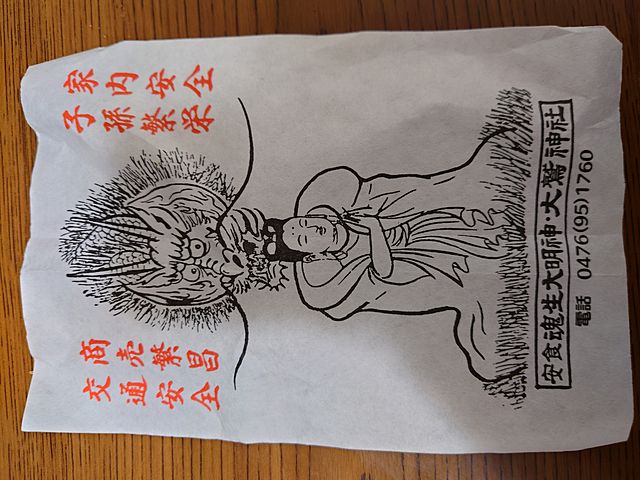 家内安全
子孫繁栄
商売繁昌
交通安全
安食魂生大明神・大鷲神社
電話 0476(95)1760